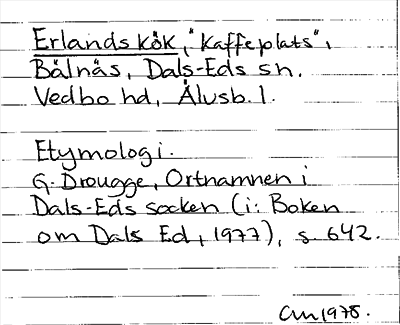 Erlands kök, "Kaffeplats",
Bälnäs, Dals-Eds sn.
Vedbo hd, Älvsb. l.
Etymologi.
G. Drougge, Ortnamnen i
Dals-Eds socken (i: Boken
om Dals Ed, 1977), s. 642.
1978.